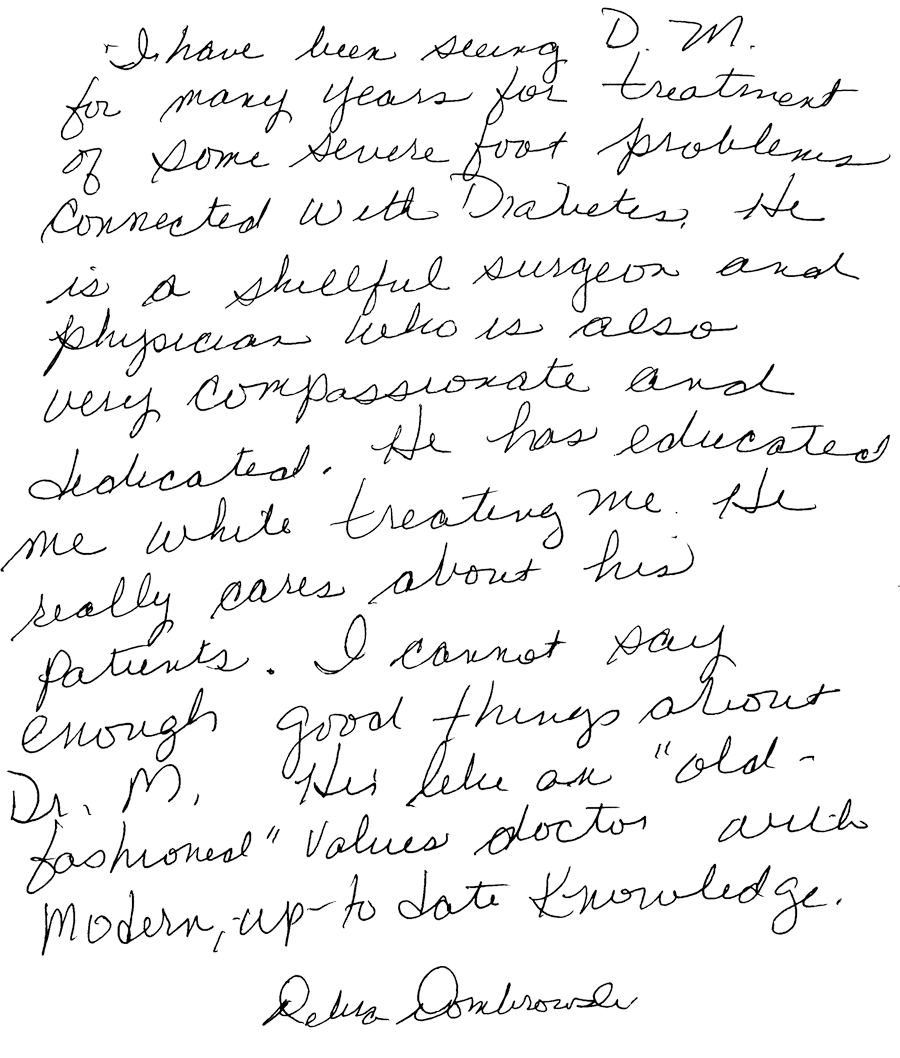 I have been seeing D. M.
for many years for treatment
of some severe foot problems
connected with Diabetes. He
is a skillful surgeon and
physician who is also
very compassionate and
dedicated. He has educated
me while treating me. He
really cares about his
patients. I cannot say
enough good things about
Dr. M. His like an "old-
fashioned" values doctor with
modern, up-to date knowledge.
Debra Dombrowski